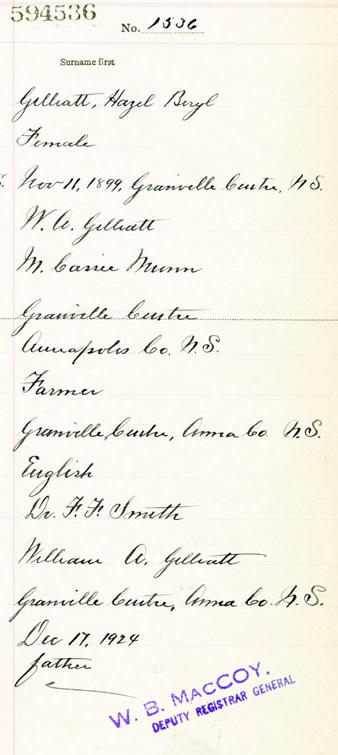 594536
No. 1536
Surname first
Gilliatt, Hazel Beryl
Female
Nov 11, 1899, Granville Centre, N.S.
W. A. Gilliatt
M. Carrie Munn
Granville Centre
Annapolis Co. N.S.
Farmer
Granville Centre, Anna Co. N.S.
English
Dr. F. F. Smith
William A. Gilliatt
Granville Centre, Anna Co. N.S.
Dec 17, 1924
father
W. B. MACCOY.
DEPUTY REGISTRAR GENERAL